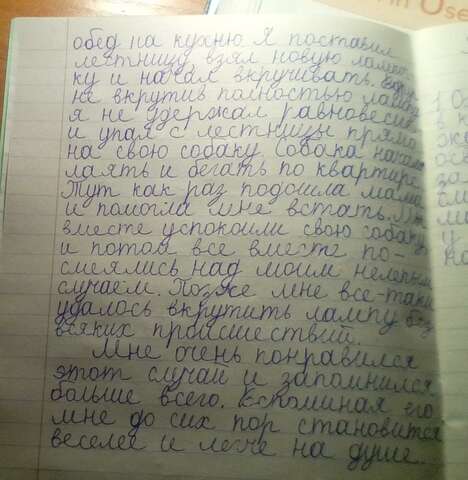 in Use
обед на кухню я поставил
лестницу взял новую лампоч-
ку и начал вкручивать.
не вкрутив полностью лампу
я не удержал равновесие
и упал с лестницы прямо
на свою собаку. Собака начала
лаять и бегать по квартире.
Тут как раз подошла мама
и помогла мне встать. Мы
вместе успокоили свою собаку
и потом все вместе по-
смеялись над моим нелепым
случаем. Позже мне все-таки
удалось вкрутить лампу без
всяких происшествий.
Мне очень понравился
этот случай и запомнился
больше всего. Вспоминая его
мне до сих пор становится
веселее и легче на душе.